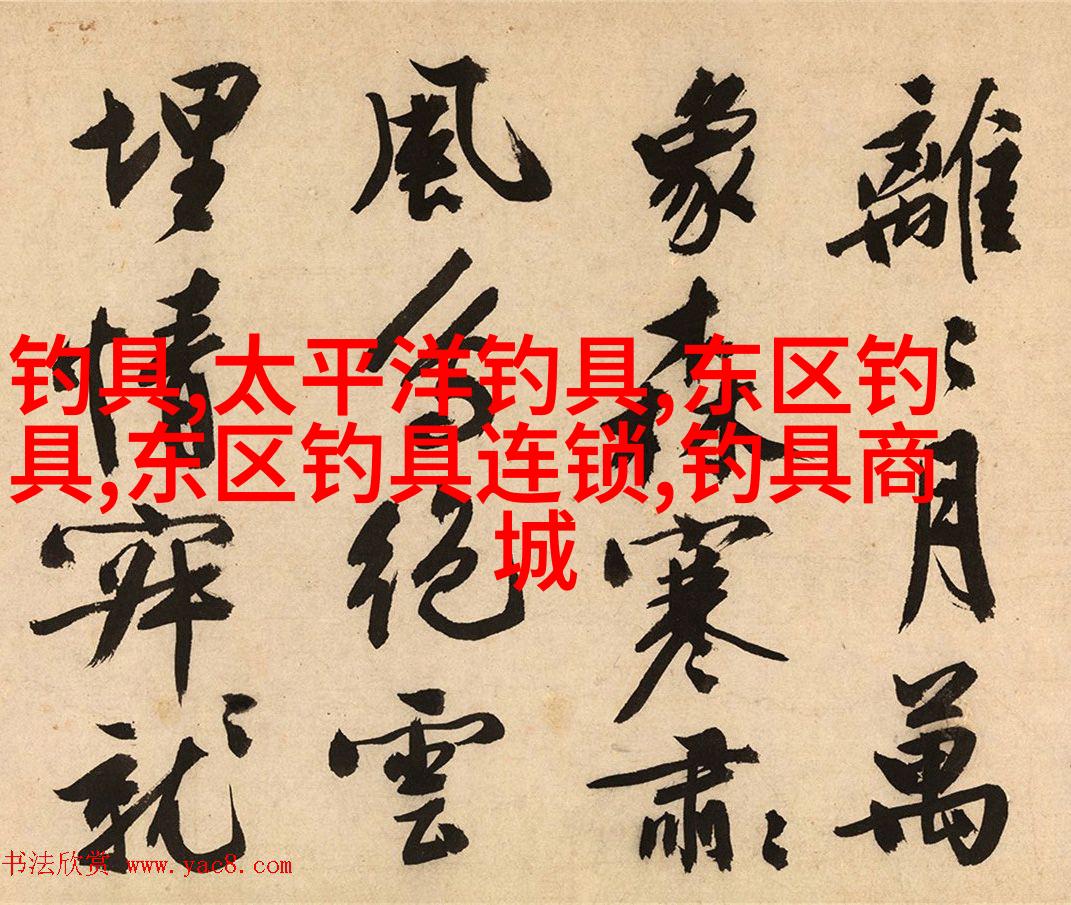 離〻月萬
象森寒肅〻
風絶雲
埋情
钓具,太平洋钓具,东区钓
具,东区钓具连锁,钓具商
城
书法欣赏 www.yac8.com